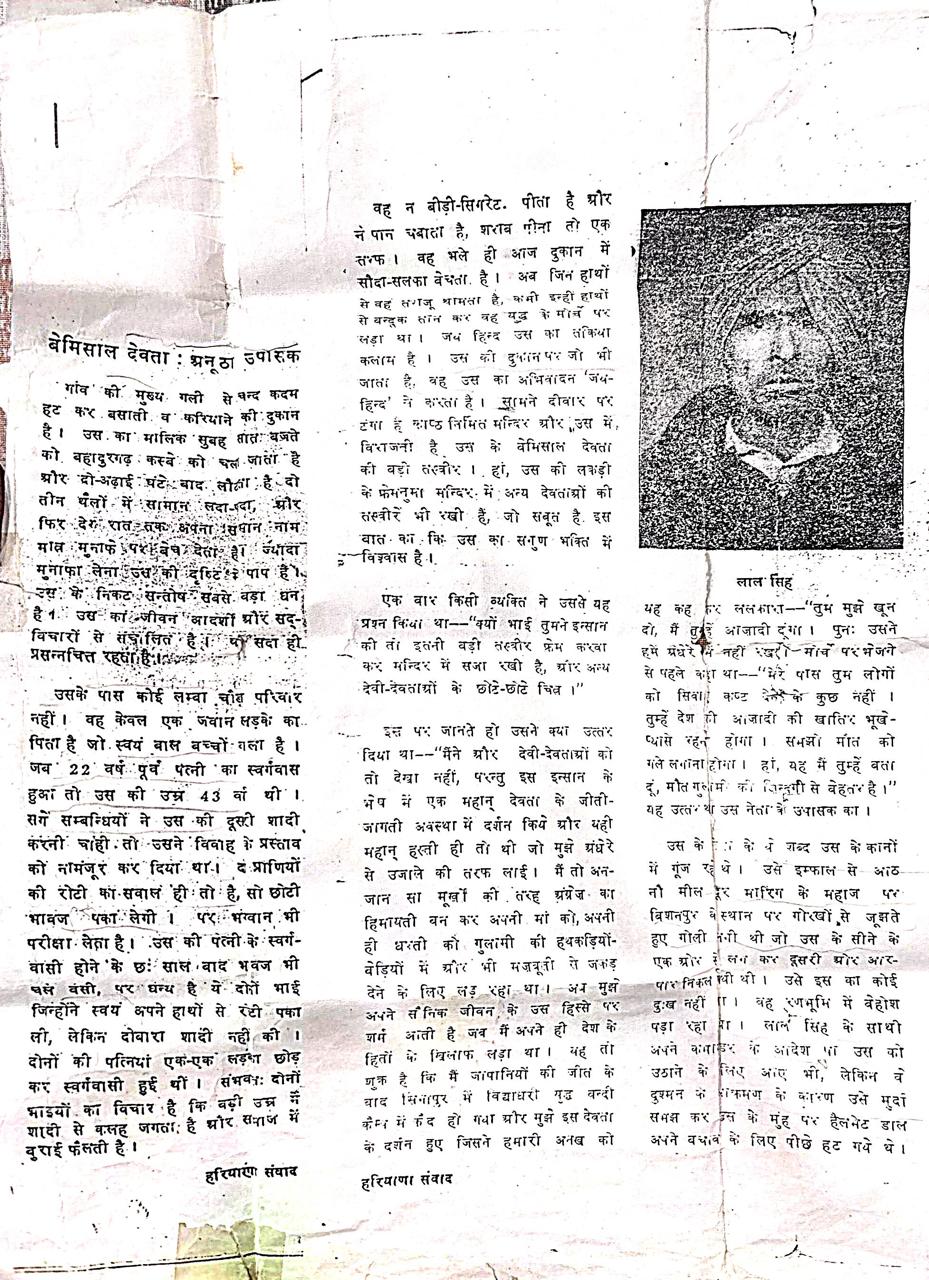 बेमिसाल देवता : अनूठा उपासक
गांव की मुख्य गली से चन्द कदम
हट कर बसाती व करियाने की दुकान
है । उस का मालिक सुबह सात बजते
को बहादुरगढ़ कस्बे को चल जाता है
और दो-अढ़ाई घंटे बाद लौटता है दो
तीन थैलों में सामान लदा-पदा, और
फिर देर रात तक अपना सामान नाम
मात्र मुनाफे पर बेच देता है। ज्यादा
मुनाफा लेना उस की दृष्टि में पाप है ।
उस के निकट सन्तोष सबसे बड़ा धन
है । उस का जीवन आदर्शों और सद्-
विचारों से संचालित है । वह सदा ही
प्रसन्नचित्त रहता है ।
उसके पास कोई लम्बा चौड़ा परिवार
नहीं । वह केवल एक जवान लड़के का
पिता है जो स्वयं बाल बच्चों वाला है ।
जब 22 वर्ष पूर्व पत्नी का स्वर्गवास
हुआ तो उस की उम्र 43 वर्ष थी ।
सगे सम्बन्धियों ने उस की दूसरी शादी
करनी चाही तो उसने विवाह के प्रस्ताव
को नामंजूर कर दिया था । प्राणियों
की रोटी का सवाल ही तो है, सो छोटी
भावज पका लेगी । पर भगवान भी
परीक्षा लेता है । उस की पत्नी के स्वर्ग-
वासी होने के छः साल बाद भावज भी
चल बसी, पर धन्य है ये दोनों भाई
जिन्होंने स्वयं अपने हाथों से रोटी पका
ली, लेकिन दोबारा शादी नहीं की ।
दोनों की पत्नियां एक-एक लड़का छोड़
कर स्वर्गवासी हुई थीं । संभवतः दोनों
भाइयों का विचार है कि बड़ी उम्र में
शादी से कलह जगता है और समाज में
बुराई फैलती है ।
हरियाणा संवाद
वह न बीड़ी-सिगरेट पीता है और
न पान चबाता है, शराब पीना तो एक
तरफ । वह भले ही आज दुकान में
सौदा-सलफा बेचता है । अब जिन हाथों
से वह तराजू थामता है, कभी इन्हीं हाथों
से बन्दूक तान कर वह युद्ध के मोर्चे पर
लड़ा था । जय हिन्द उस का तकिया
कलाम है । उस की दुकान पर जो भी
जाता है, वह उस का अभिवादन 'जय-
हिन्द' से करता है । सामने दीवार पर
टंगा है काष्ठ निर्मित मन्दिर और उस में,
विराजती है उस के बेमिसाल देवता
की बड़ी तस्वीर । हां, उस की लकड़ी
के फ्रेमनुमा मन्दिर में अन्य देवताओं की
तस्वीरें भी रखी हैं, जो सबूत है इस
बात का कि उस का सगुण भक्ति में
विश्वास है ।
एक बार किसी व्यक्ति ने उससे यह
प्रश्न किया था—"क्यों भाई तुमने इन्सान
की तो इतनी बड़ी तस्वीर फ्रेम करवा
कर मन्दिर में सजा रखी है, और अन्य
देवी-देवताओं के छोटे-छोटे चित्र ।"
इस पर जानते हो उसने क्या उत्तर
दिया था—"मैंने और देवी-देवताओं को
तो देखा नहीं, परन्तु इस इन्सान के
भेष में एक महान् देवता के जीती-
जागती अवस्था में दर्शन किये और यही
महान् हस्ती ही तो थी जो मुझे अंधेरे
से उजाले की तरफ लाई । मैं तो अन-
जान सा मूर्खों की तरह अंग्रेज का
हिमायती बन कर अपनी मां को, अपनी
ही धरती को गुलामी की हथकड़ियों-
बेड़ियों में और भी मजबूती से जकड़
देने के लिए लड़ रहा था । अब मुझे
अपने सैनिक जीवन के उस हिस्से पर
शर्म आती है जब मैं अपने ही देश के
हितों के खिलाफ लड़ा था । यह तो
शुक्र है कि मैं जापानियों की जीत के
बाद सिंगापुर में विद्याधरी युद्ध बन्दी
कैम्प में कैद हो गया और मुझे इस देवता
के दर्शन हुए जिसने हमारी अनख को
हरियाणा संवाद
लाल सिंह
यह कह कर ललकारा—"तुम मुझे खून
दो, मैं तुम्हें आजादी दूंगा । पुनः उसने
हमें अंधेरे में नहीं रखा । मोर्चे पर भेजने
से पहले कहा था—"मेरे पास तुम लोगों
को सिवाय कष्ट देने के कुछ नहीं ।
तुम्हें देश की आजादी की खातिर भूखे-
प्यासे रहना होगा । समझो मौत को
गले लगाना होगा । हां, यह मैं तुम्हें बता
दूं, मौत गुलामी की जिन्दगी से बेहतर है ।"
यह उत्तर था उस नेता के उपासक का ।
उस के के ये शब्द उस के कानों
में गूंज रहे थे । उसे इम्फाल से आठ
नौ मील दूर मारिंग के महाज पर
बिशनपुर के स्थान पर गोरखों से जूझते
हुए गोली लगी थी जो उस के सीने के
एक ओर से लग कर दूसरी ओर आर-
पार निकल गयी थी । उसे इस का कोई
दुःख नहीं था । वह रणभूमि में बेहोश
पड़ा रहा था । लाल सिंह के साथी
अपने कमांडर के आदेश पर उस को
उठाने के लिए आए भी, लेकिन वे
दुश्मन के आक्रमण के कारण उसे मुर्दा
समझ कर उस के मुंह पर हैलमेट डाल
अपने बचाव के लिए पीछे हट गये थे ।